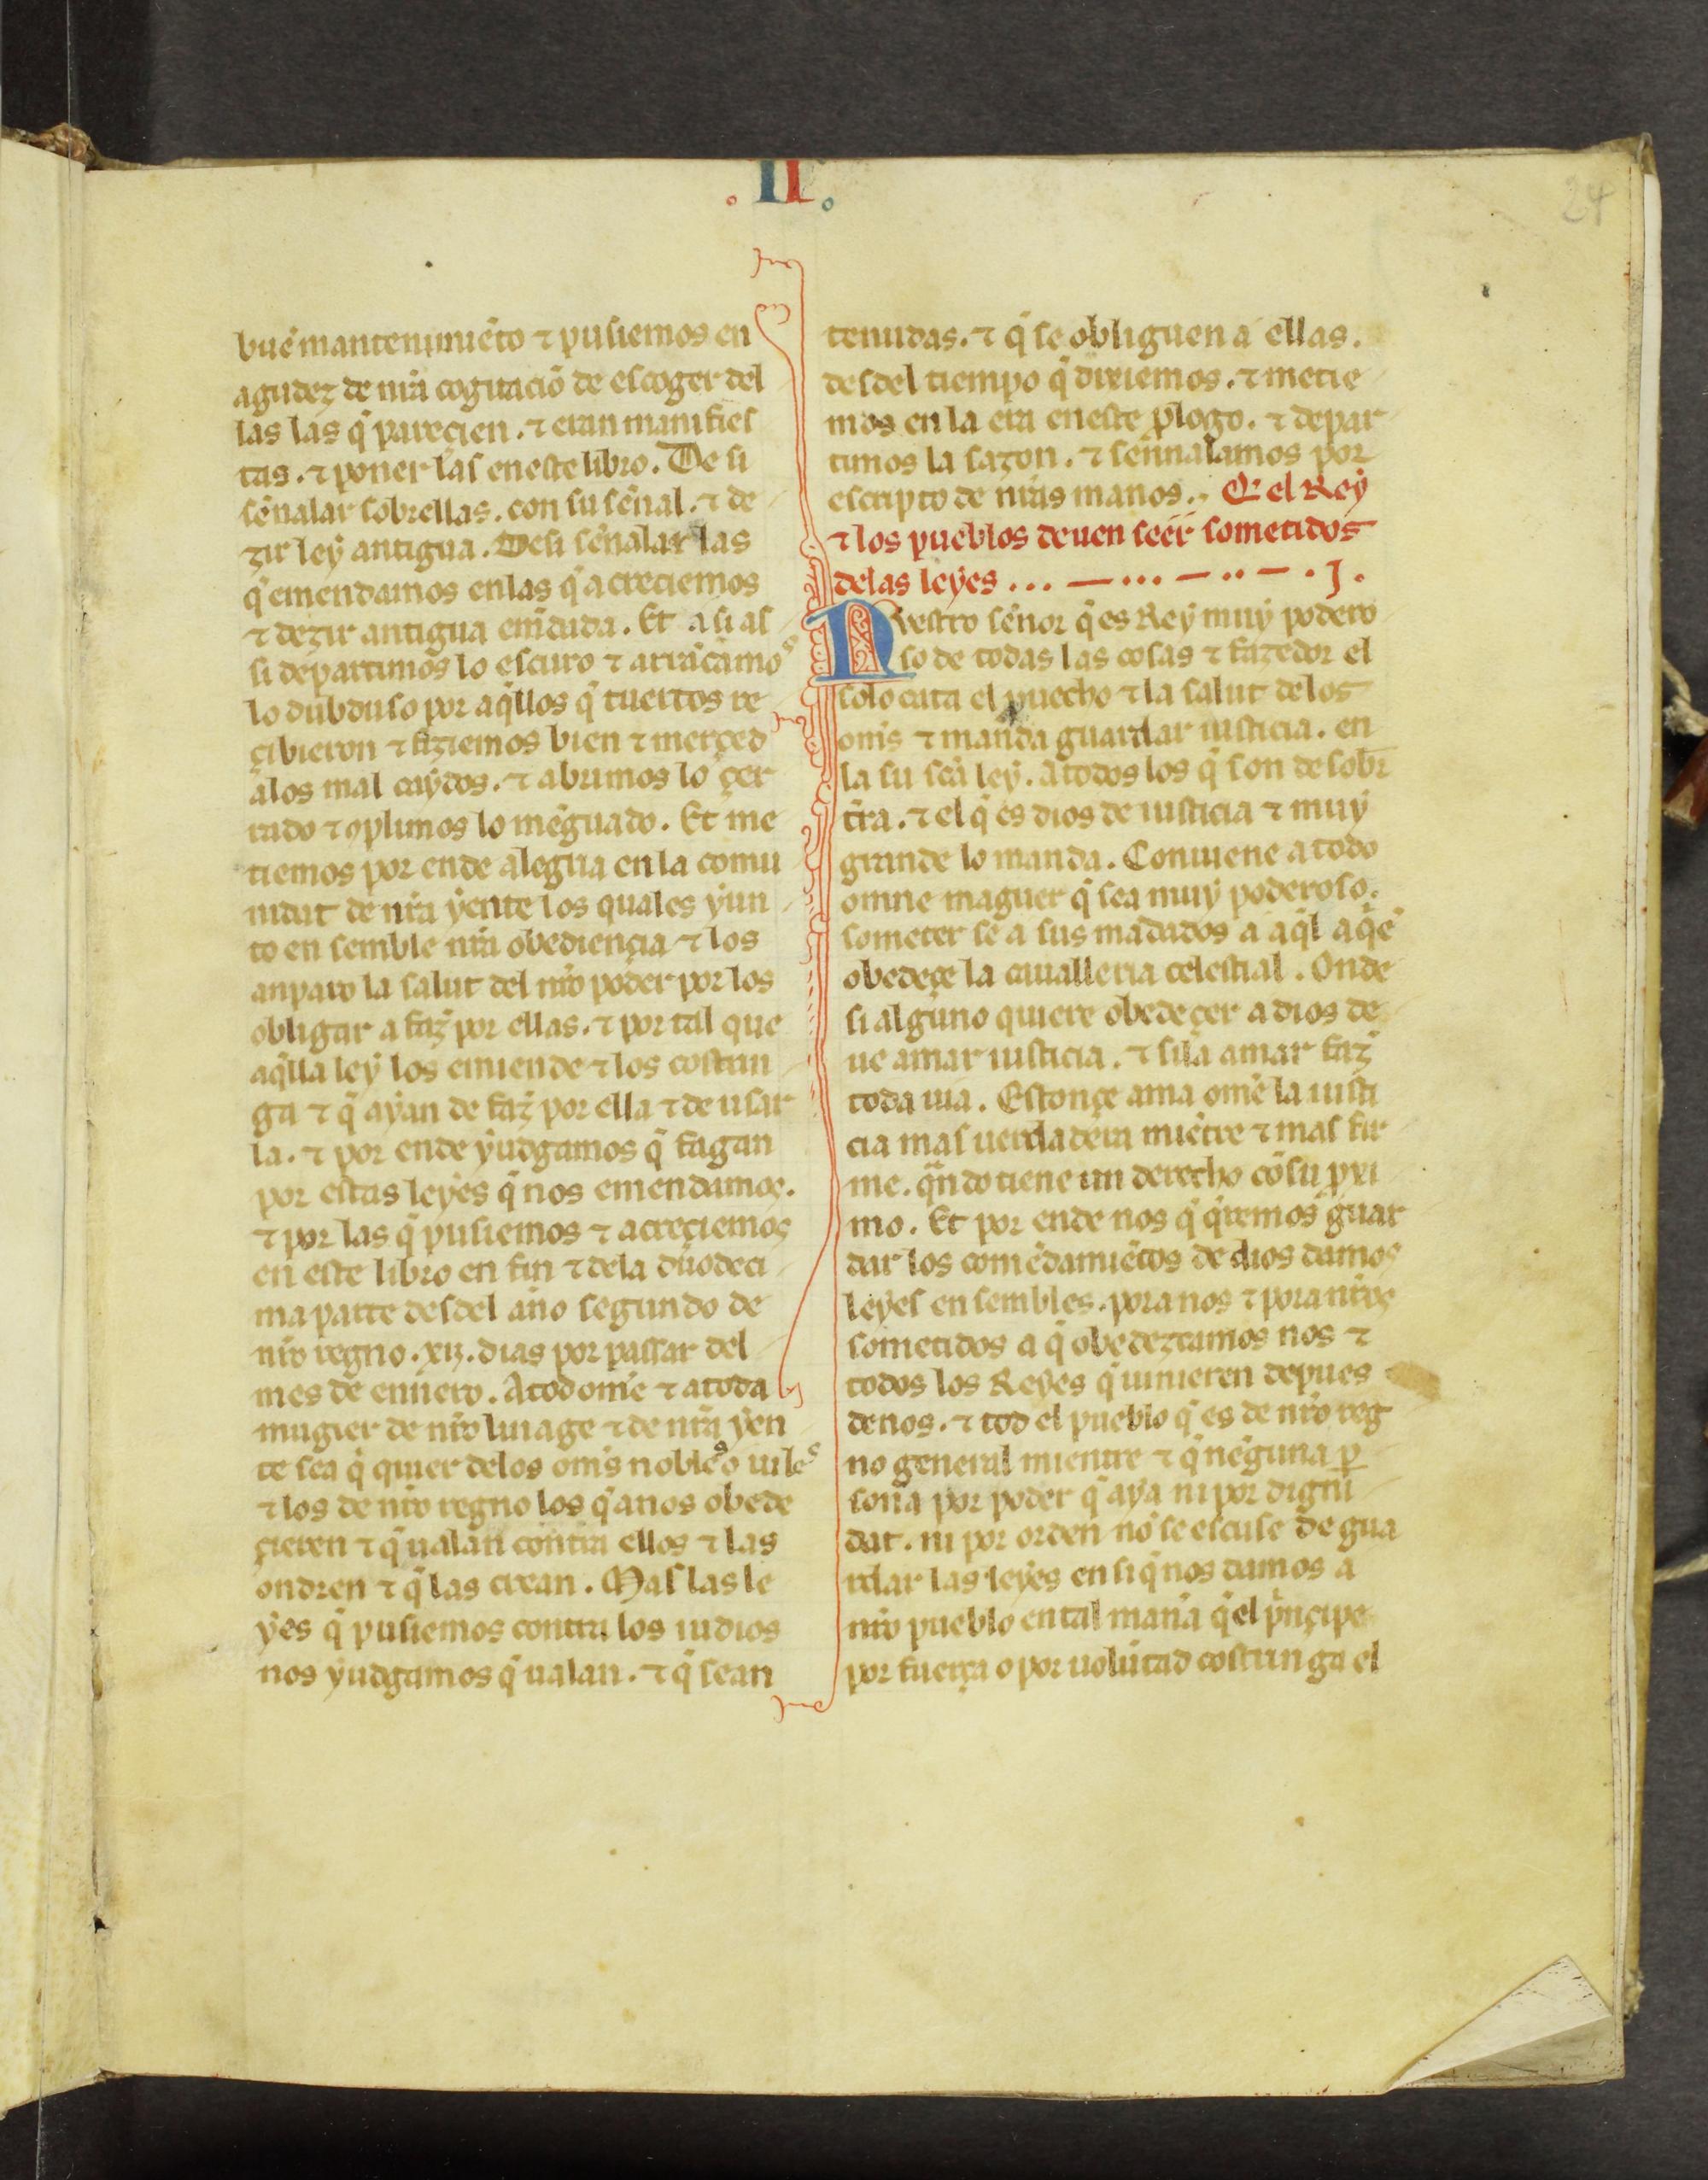 .II.
24
buẽ mantenimiẽto ⁊ pusiemos en
agudez de nr̃a cogitaciõ de escoger del
las las q̃ pareçien. ⁊ eran manifies
tas. ⁊ poner las en este libro. De si
sẽnalar sobrellas. con su sẽnal. ⁊ de
zir ley antigua. Desi sẽnalar las
q̃ emendamos en las q̃ acreciemos
⁊ dezir antigua em̃duda. Et a si as
si departimos lo escuro ⁊ arrãcamos
lo dubduso por aq̃llos q̃ tuertos re
çibieron ⁊ fiziemos bien ⁊ merçed
alos mal caydos. ⁊ abrimos lo çer
rado ⁊ ꝯplimos lo mẽguado. Et me
tiemos por ende alegria en la comu
nidat de nr̃a yente los quales yun
to en semble nr̃a obediençia ⁊ los
anparo la salut del nr̃o poder por los
obligar a faz̃ por ellas. ⁊ por tal que
aq̃lla ley los emiende ⁊ los costrin
ga ⁊ q̃ ayan de faz̃ por ella ⁊ de usar
la. ⁊ por ende yudgamos q̃ fagan
por estas leyes q̃ nos emendamos.
⁊ por las q̃ pusiemos ⁊ acreçiemos
en este libro en fin ⁊ dela duodeci
ma parte desdel año segundo de
nr̃o regno. xij. dias por passar del
mes de enñero. A tod ome ⁊ a toda
mugier de nr̃o linage ⁊ de nr̃a yen
te sea q̃ quier delos om̃s nobles o uiles
⁊ los de nr̃o regno los q̃ a nos obede
çieren ⁊ q̃ ualan contra ellos ⁊ las
ondren ⁊ q̃ las crean. Mas las le
yes q̃ pusiemos contra los iudios
nos yudgamos q̃ ualan. ⁊ q̃ sean
tenudas. ⁊ q̃ se obliguen a ellas.
desdel tiempo q̃ dixiemos. ⁊ metie
mos en la era en este plogo. ⁊ depar
timos la sazon. ⁊ sẽnnalamos por
escripto de nr̃as manos. Q̃ el Rey
⁊ los pueblos deuen seer sometidos
delas leyes ... — ... — .. — . J .
Nuestro sẽnor q̃ es Rey muy podero
so de todas las cosas ⁊ fazedor el
solo cata el puecho ⁊ la salut delos
om̃s ⁊ manda guardar iusticia. en
la su sc̃a ley. A todos los q̃ son de sobr̃
tr̃a. ⁊ el q̃ es dios de iusticia ⁊ muy
grande lo manda. Conuiene a todo
omne maguer q̃ sea muy poderoso.
someter se a sus mãdados a aq̃l aq̃ẽ
obedeçe la caualleria celestial. Onde
si alguno quiere obedeçer a dios de
ue amar iusticia. ⁊ sila amar faz̃
toda uia. Estonçe ama omẽ la iusti
cia mas uerdadera miẽtre ⁊ mas fir
me. q̃ndo tiene un derecho cõ su pxi
mo. Et por ende nos q̃ q̃remos guar
dar los comẽdamiẽtos de dios damos
leyes en sembles. pora nos ⁊ pora nr̃os
sometidos a q̃ obedezcamos nos ⁊
todos los Reyes q̃ uinieren depues
de nos. ⁊ tod el pueblo q̃ es de nr̃o reg
no general mientre ⁊ q̃ nẽguna p̱
sona por poder q̃ aya ni por digni
dat. ni por orden nõ se escuse de gua
rdar las leyes en si q̃ nos damos a
nr̃o pueblo en tal maña q̃ el p̃nçipe
por fuerça o por uolũtad costringa el